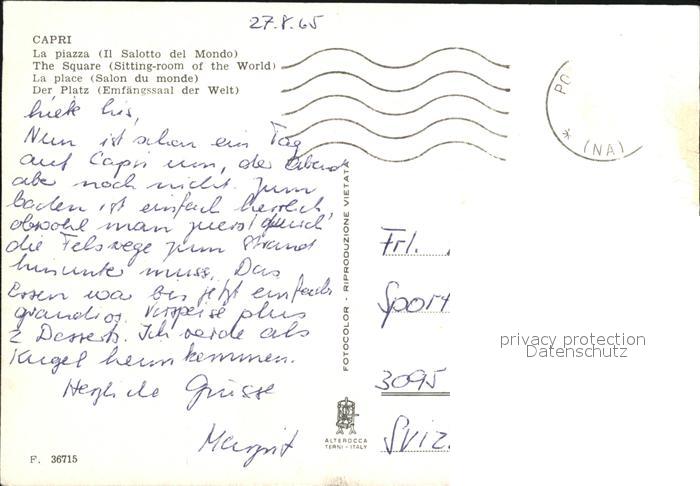 27.8.65
CAPRI
La piazza (Il Salotto del Mondo)
The Square (Sitting-room of the World)
La place (Salon du monde)
Der Platz (Emfängssaal der Welt)
Nun ist schon ein Tag
auf Capri um, der Abend
aber noch nicht. Zum
baden ist es einfach herrlich,
obwohl man zuerst durch
die Felswege zum Strand
hinunter muss. Das
Essen war bis jetzt einfach
grandios. Vorspeise plus
2 Desserts. Ich werde als
Kugel heimkommen.
Herzliche Grüsse
Margrit
F. 36715
FOTOCOLOR - RIPRODUZIONE VIETATA
ALTEROCCA
TERNI - ITALY
PO
* (NA)
Frl.
Sport
3095
Sviz.
privacy protection
Datenschutz